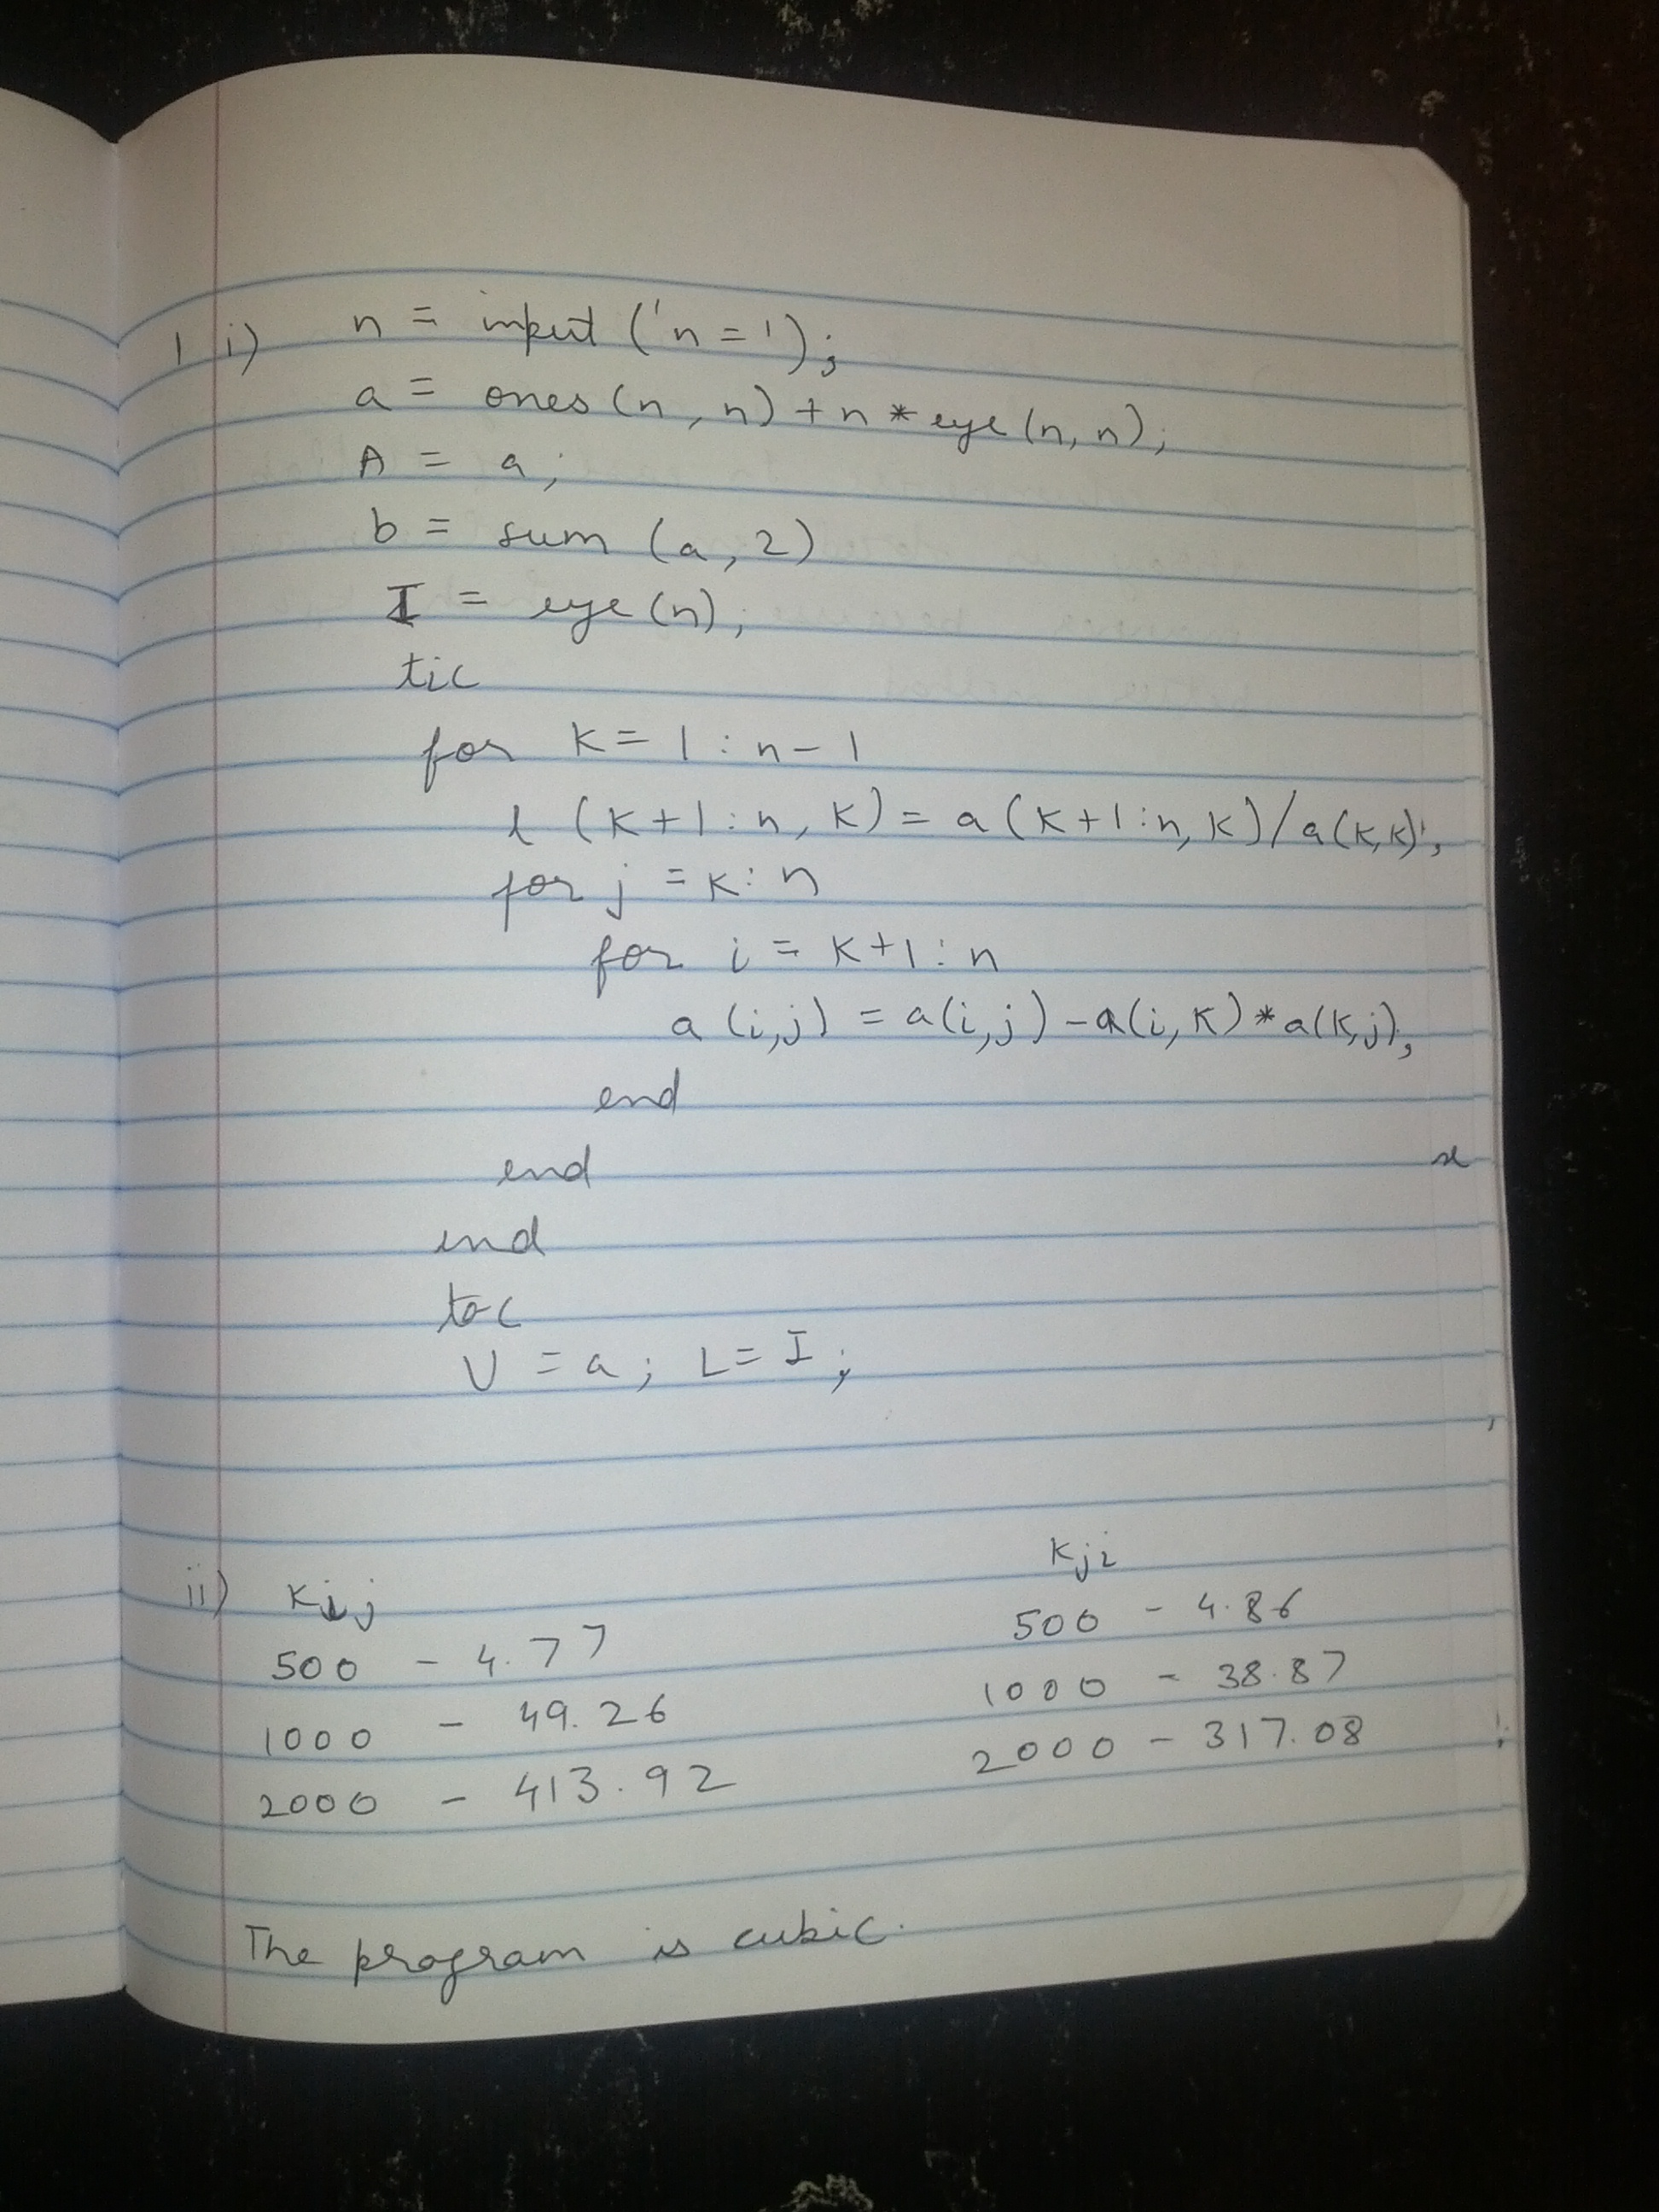 1 i) n = input ('n=');
a = ones(n, n) + n * eye(n, n);
A = a;
b = sum (a, 2)
I = eye(n);
tic
for k = 1 : n - 1
l (k+1 : n, k) = a (k+1:n, k)/a(k,k);
for j = k : n
for i = k+1 : n
a (i,j) = a(i,j) - a(i, k) * a(k,j);
end
end
end
toc
U = a; L = I;
ii) kij kji
500 - 4.77 500 - 4.86
1000 - 49.26 1000 - 38.87
2000 - 413.92 2000 - 317.08
The program is cubic.